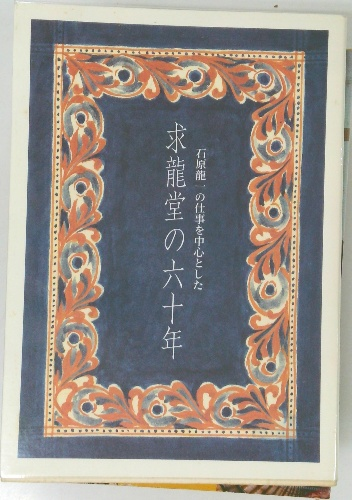 石原龍一の仕事を中心とした
求龍堂の六十年